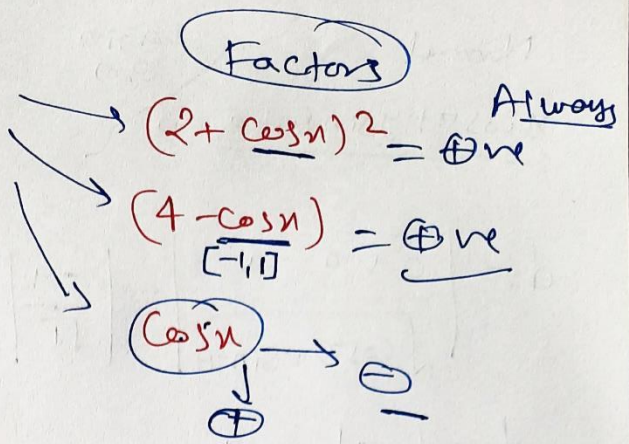 Factors
Always
(2 + cosx)² = ⊕ve
(4 - cosx) = ⊕ve
[-1,1]
Cosx → ⊖
↓
⊕